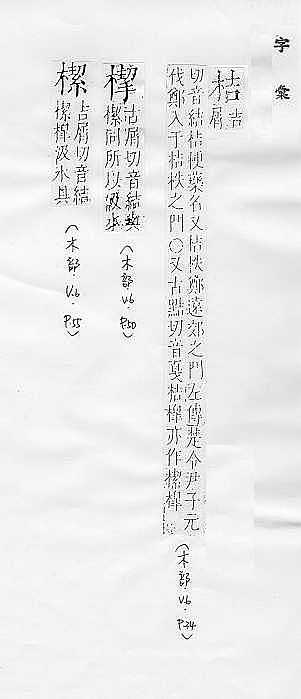 字彙
桔 吉屑
切音結桔梗藥名又桔柣鄭遠郊之門左傳楚令尹子元
伐鄭入于桔柣之門○又古黠切音戛桔橰亦作㮮橰
(木部.V.6.P.34)
㮮 古屑切音結與
潔同所以汲水
(木部.V.6 P.50)
潔 吉屑切音結
潔橰汲水具
(木部.V.6 P.55)